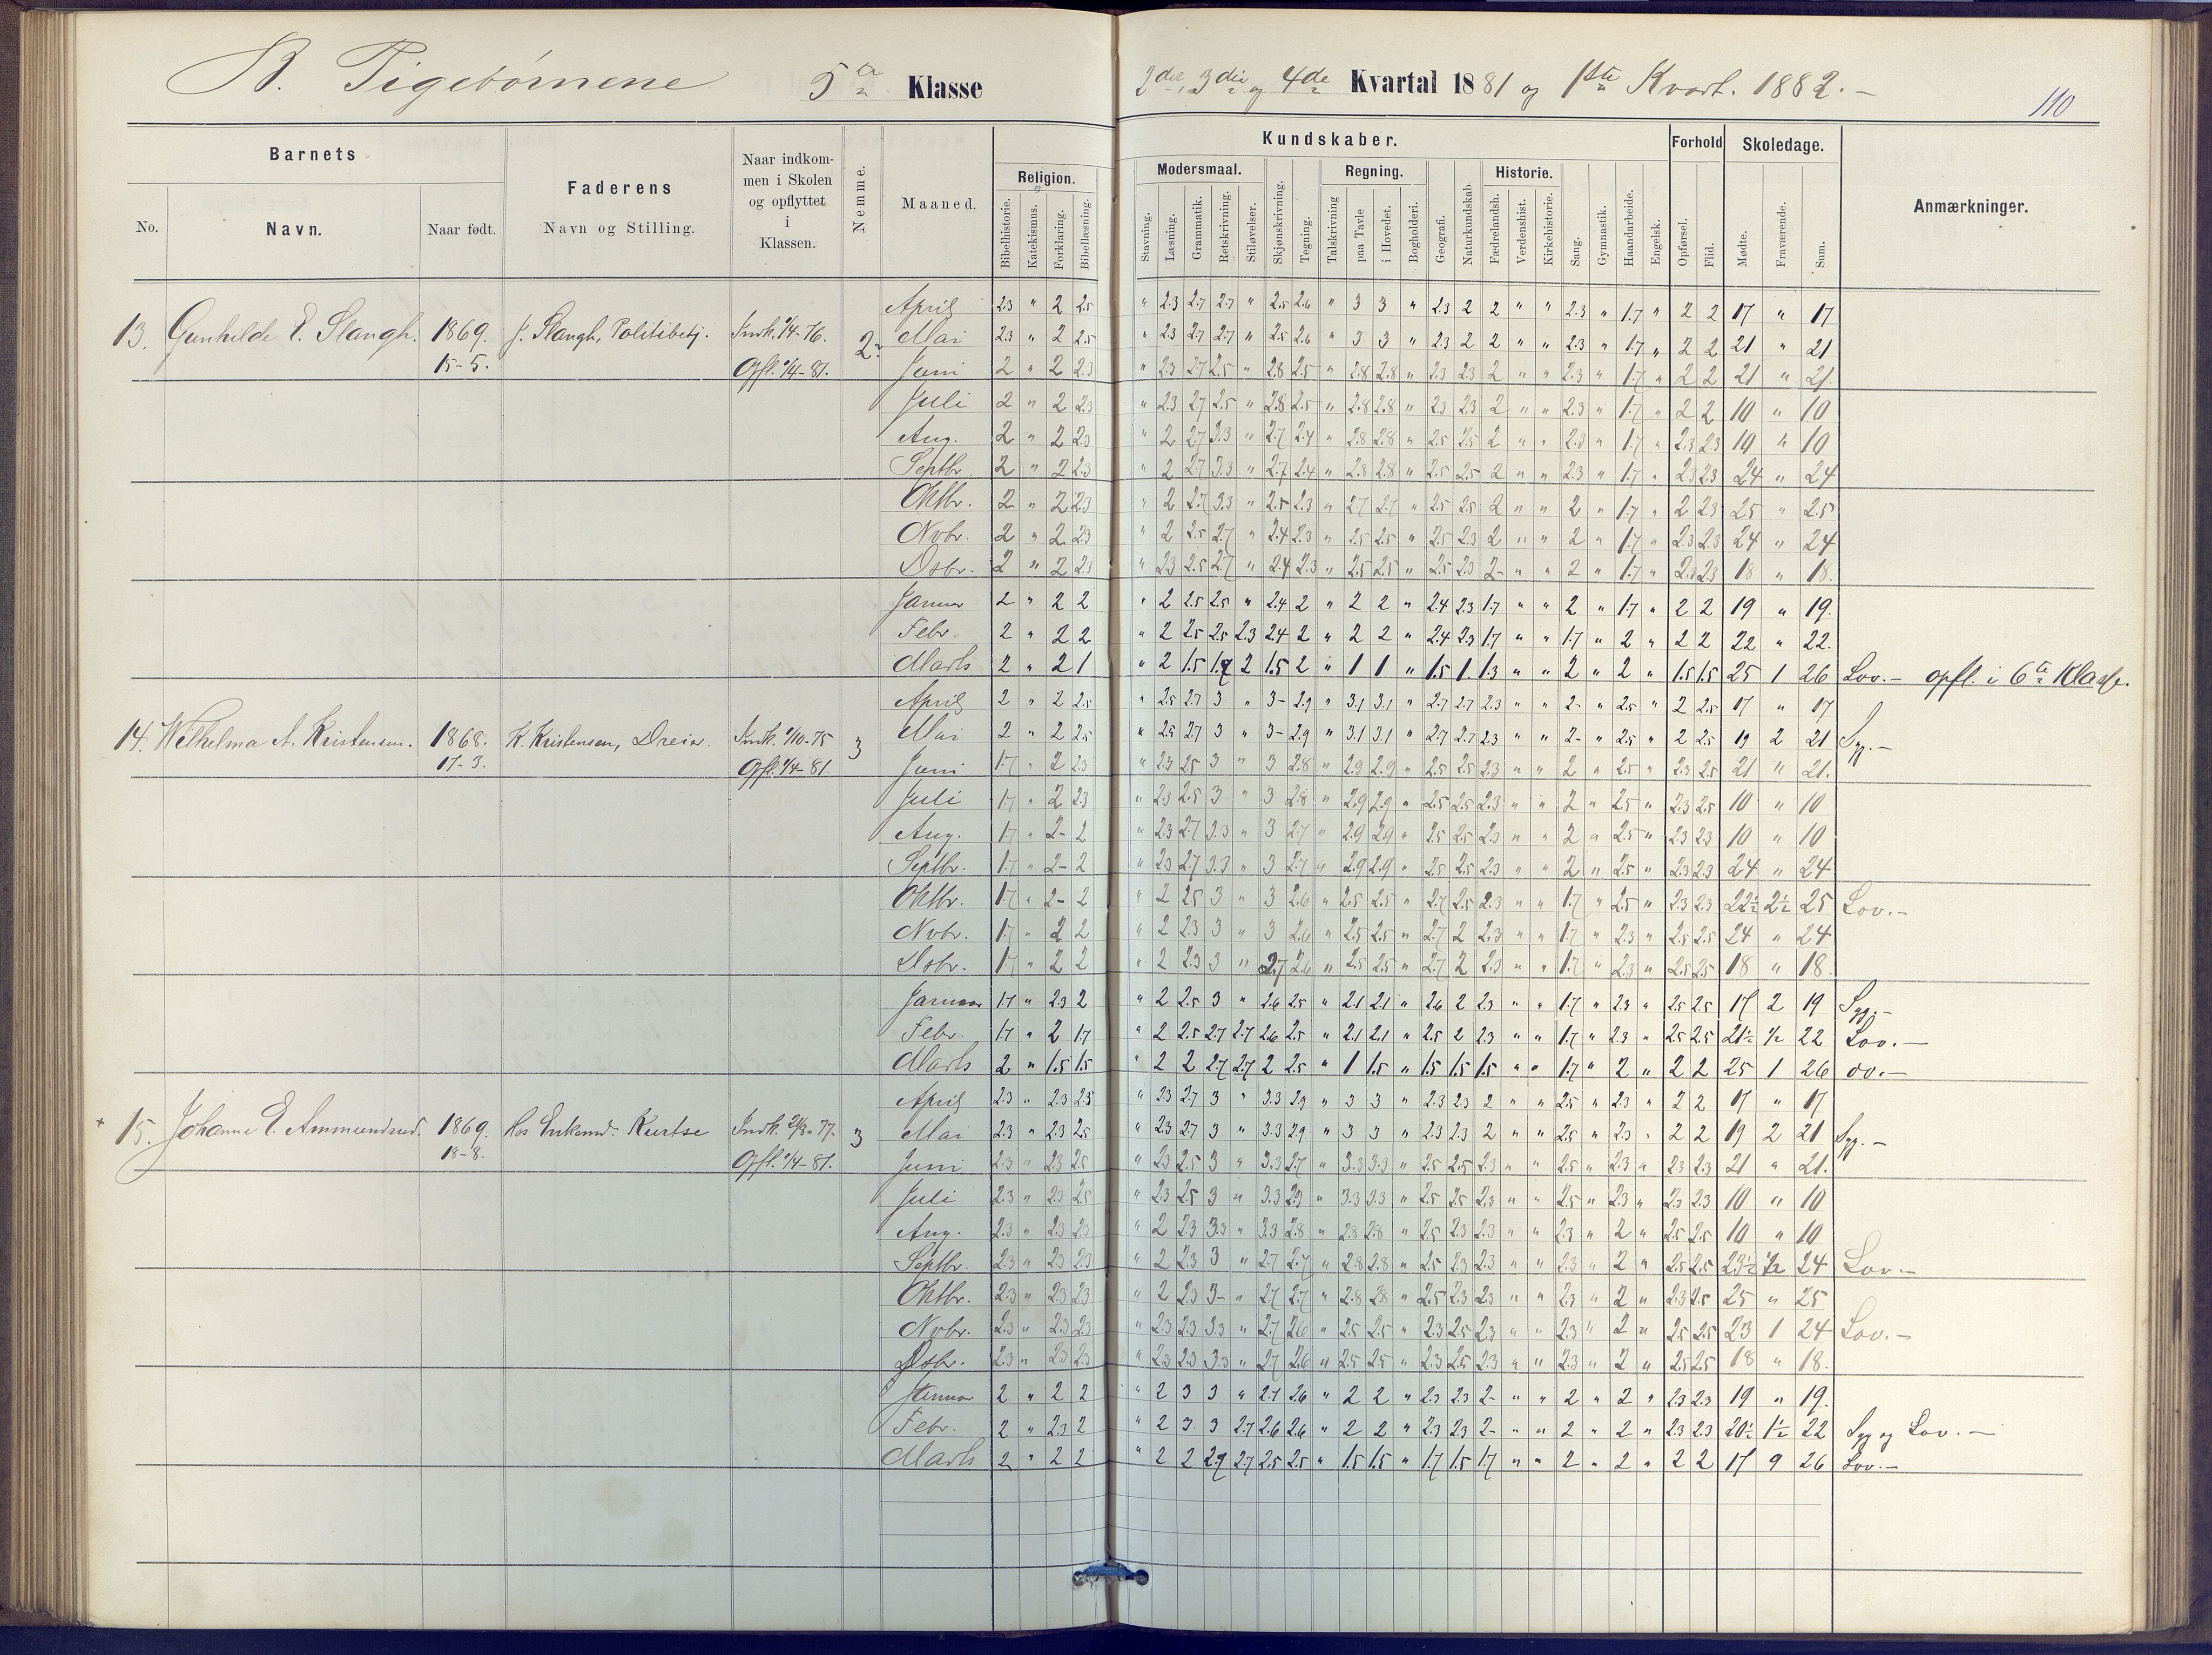 B. Pigebørnene 5te Klasse
2det, 3die og 4de Kvartal 1881 og 1ste Kvart. 1882.-
110
Barnets
Faderens
Naar indkommen i Skolen og opflyttet i Klassen.
Nemme.
Maaned.
Kundskaber.
Forhold
Skoledage.
Anmærkninger.
No.
Navn.
Naar født.
Navn og Stilling.
Religion.
Modersmaal.
Regning.
Historie.
Bibelhistorie.
Katekismus.
Forklaring.
Bibellæsning.
Stavning.
Læsning.
Grammatik.
Retskrivning.
Stiløvelser.
Skjønskrivning.
Tegning.
Talskrivning
paa Tavle
i Hovedet.
Bogholderi.
Geografi.
Naturkundskab.
Fædrelandsh.
Verdenshist.
Kirkehistorie.
Sang.
Gymnastik.
Haandarbeide.
Engelsk.
Opførsel.
Flid.
Mødte.
Fraværende.
Sum.
April 2.3 " 2 2.5 " 2.3 2.7 2.7 " 2.5 2.6 " 3 3 " 2.3 2 2 " " 2.3 " 1.7 " 2 2 17 " 17
13. Gunhilde E. 1869. Politibetj. Indk. 1/4-76. 2 Mai 2.3 " 2 2.5 " 2.3 2.7 2.7 " 2.5 2.6 " 3 3 " 2.3 2 2 " " 2.3 " 1.7 " 2 2 21 " 21
15-5. Opfl. 1/4-81. Juni 2 " 2 2.3 " 2.3 2.7 2.5 " 2.8 2.5 " 2.8 2.8 " 2.3 2.3 2 " " 2.3 " 1.7 " 2 2 21 " 21.
Juli 2 " 2 2.3 " 2.3 2.7 2.5 " 2.8 2.5 " 2.8 2.8 " 2.3 2.3 2 " " 2.3 " 1.7 " 2 2 10 " 10
Aug. 2 " 2 2.3 " 2 2.7 3.3 " 2.7 2.4 " 2.8 2.8 " 2.5 2.5 2 " " 2.3 " 1.7 " 2.3 2.3 10 " 10
Septbr. 2 " 2 2.3 " 2 2.7 3.3 " 2.7 2.4 " 2.8 2.8 " 2.5 2.5 2 " " 2.3 " 1.7 " 2.3 2.3 24 " 24
Oktbr. 2 " 2 2.3 " 2 2.7 3.3 " 2.5 2.3 " 2.7 2.7 " 2.5 2.5 2 " " 2 " 1.7 " 2 2.3 25 " 25
Nvbr. 2 " 2 2.3 " 2 2.5 2.7 " 2.4 2.3 " 2.5 2.5 " 2.5 2.3 2 " " 2 " 1.7 " 2.3 2.3 24 " 24
Dsbr. 2 " 2 2.3 " 2.3 2.5 2.7 " 2.4 2.3 " 2.5 2.5 " 2.5 2.3 2- " " 2 " 1.7 " 2.3 2.3 18 " 18.
Januar 2 " 2 2 " 2 2.5 2.5 " 2.4 2 " 2 2 " 2.4 2.3 1.7 " " 2 " 1.7 " 2 2 19 " 19.
Febr. 2 " 2 2 " 2 2.5 2.5 2.3 2.4 2 " 2 2 " 2.4 2.3 1.7 " " 1.7 " 2 " 2 2 22 " 22.
Marts 2 " 2 1 " 2 1.5 1.7 2 1.5 2 " 1 1 " 1.5 1 1.3 " " 2 " 2 " 1.5 1.5 25 1 26 Lov.- opfl. i 6te Klasse.
April 2 " 2 2.5 " 2.5 2.7 3 " 3- 2.9 " 3.1 3.1 " 2.7 2.7 2.3 " " 2- " 2.5 " 2 2.5 17 " 17
14. Wilhelma A. Kristensen. 1868. K. Kristensen, Dreier. Indk. 1/10-75 3 Mai 2 " 2 2.5 " 2.5 2.7 3 " 3- 2.9 " 3.1 3.1 " 2.7 2.7 2.3 " " 2- " 2.5 " 2 2.5 19 2 21 Syg.-
17-3. Opfl. 1/4-81. Juni 1.7 " 2 2.3 " 2.3 2.5 3 " 3 2.8 " 2.9 2.9 " 2.5 2.5 2.3 " " 2 " 2.5 " 2.3 2.5 21 " 21.
Juli 1.7 " 2 2.3 " 2.3 2.5 3 " 3 2.8 " 2.9 2.9 " 2.5 2.5 2.3 " " 2 " 2.5 " 2.3 2.5 10 " 10
Aug. 1.7 " 2- 2 " 2.3 2.7 3.3 " 3 2.7 " 2.9 2.9 " 2.5 2.5 2.3 " " 2 " 2.5 " 2.3 2.3 10 " 10
Septbr. 1.7 " 2- 2 " 2.3 2.7 3.3 " 3 2.7 " 2.9 2.9 " 2.5 2.5 2.3 " " 2 " 2.5 " 2.3 2.3 24 " 24
Oktbr. 1.7 " 2- 2 " 2 2.5 3 " 3 2.6 " 2.5 2.5 " 2.7 2.5 2.3 " " 1.7 " 2.5 " 2.3 2.3 22½ 2½ 25 Lov.-
Nvbr. 1.7 " 2 2 " 2 2.3 3 " 3 2.6 " 2.5 2.5 " 2.7 2 2.3 " " 1.7 " 2.3 " 2.5 2.5 24 " 24
Dsbr. 1.7 " 2 2 " 2 2.3 3 " 2.7 2.6 " 2.5 2.5 " 2.7 2 2.3 " " 1.7 " 2.3 " 2.5 2.5 18 " 18.
Januar 1.7 " 2.3 2 " 2 2.5 3 " 2.6 2.5 " 2.1 2.1 " 2.6 2 2.3 " " 1.7 " 2.3 " 2.5 2.5 17 2 19 Syg.-
Febr. 1.7 " 2 1.7 " 2 2.5 2.7 2.7 2.6 2.5 " 2.1 2.1 " 2.5 2 2.3 " " 1.7 " 2.3 " 2.5 2.5 21½ ½ 22 Lov.-
Marts 2 " 1.5 1.5 " 2 2 2.7 2.7 2 2.5 " 1 1.5 " 1.5 1.5 1.5 " " 1.7 " 2 " 2 2 25 1 26 do.-
April 2.3 " 2.3 2.5 " 2.3 2.7 3 " 3.3 2.9 " 3 3 " 2.3 2.3 2 " " 2.5 " 2.3 " 2 2 17 " 17
+ 15. Johanne E. Ammundsrud. 1869. Hos Enkemd. Kurtse 3 Mai 2.3 " 2.3 2.5 " 2.3 2.7 3 " 3.3 2.9 " 3 3 " 2.3 2.3 2 " " 2.5 " 2.3 " 2 2 19 2 21 Syg.-
18-8. Opfl. 1/4-81. Juni 2.3 " 2.3 2.5 " 2.3 2.5 3 " 3.3 2.7 " 3.3 3.3 " 2.5 2.5 2.3 " " 2.5 " 2.3 " 2.3 2.3 21 " 21.
Juli 2.3 " 2.3 2.5 " 2.3 2.5 3 " 3.3 2.9 " 3.3 3.3 " 2.5 2.5 2.3 " " 2.5 " 2.3 " 2.3 2.3 10 " 10
Aug. 2.3 " 2.3 2.3 " 2 2.3 3.3 " 3.3 2.8 " 2.8 2.8 " 2.5 2.3 2.3 " " 2.3 " 2 " 2.5 2.5 10 " 10
Septbr. 2.3 " 2.3 2.3 " 2 2.3 3 " 2.7 2.7 " 2.8 2.8 " 2.5 2.3 2.3 " " 2.3 " 2 " 2.5 2.5 23½ ½ 24 Lov.-
Oktbr. 2.3 " 2.3 2.3 " 2 2.3 3- " 2.7 2.7 " 2.8 2.8 " 2.5 2.3 2.3 " " 2.3 " 2 " 2.3 2.5 25 " 25
Nvbr. 2.3 " 2.3 2.3 " 2.3 2.3 3.3 " 2.7 2.6 " 2.5 2.5 " 2.3 2.5 2.3 " " 2.3 " 2 " 2.5 2.5 23 1 24 Lov.-
Dsbr. 2.3 " 2.3 2.3 " 2.3 2.3 3.3 " 2.7 2.6 " 2.5 2.5 " 2.3 2.5 2.3 " " 2.3 " 2 " 2.5 2.5 18 " 18.
Januar 2 " 2 2 " 2 3 3 " 2.7 2.6 " 2 2 " 2.3 2.3 2- " " 2 " 2 " 2.3 2.3 19 " 19.
Febr. 2 " 2.3 2 " 2 3 3 2.7 2.6 2.6 " 2 2 " 2.3 2.3 2- " " 2 " 2 " 2.3 2.3 20½ 1½ 22 Syg og Lov.-
Marts 2 " 2 2 " 2 2 2.7 2.7 2.5 2.5 " 1.5 1.5 " 1.7 1.5 1.7 " " 2 " 2 " 2 2 17 9 26 Lov.-